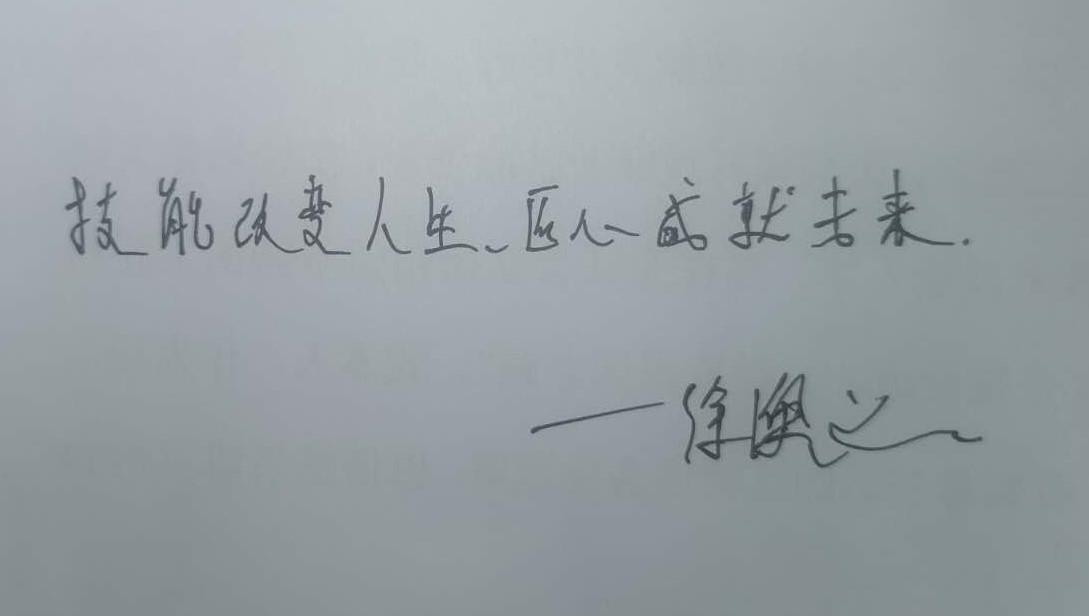 技能改变人生、匠心成就未来.
——徐澳